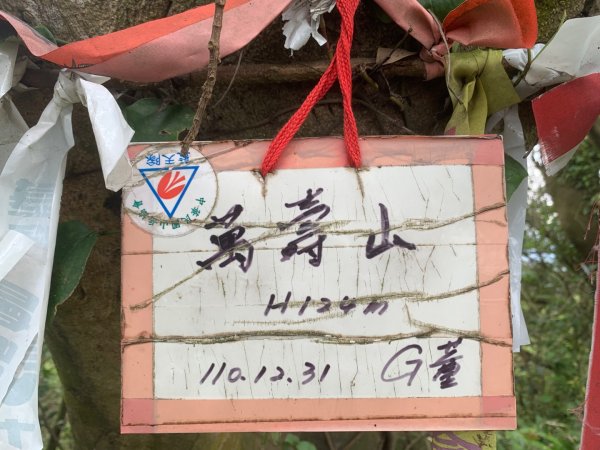 萬壽山
H124m
110.12.31 G董